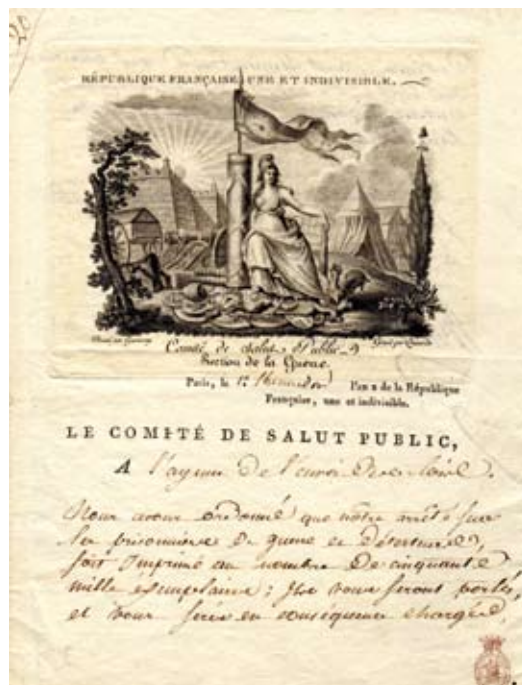 20
RÉPUBLIQUE FRANÇAISE UNE ET INDIVISIBLE.
Comité de Salut Public
Section de la Guerre
Paris, le 1er thermidor l'an 2 de la République
Française, une et indivisible.
LE COMITÉ DE SALUT PUBLIC,
A l'agence de l'envoi des Loix.
Nous avons ordonné que notre arrêté sur
les prisonniers de guerre et déserteurs,
soit Imprimé au nombre de cinquante
mille éxemplaires; Ils vous seront portés,
et vous serés en conséquence chargés,